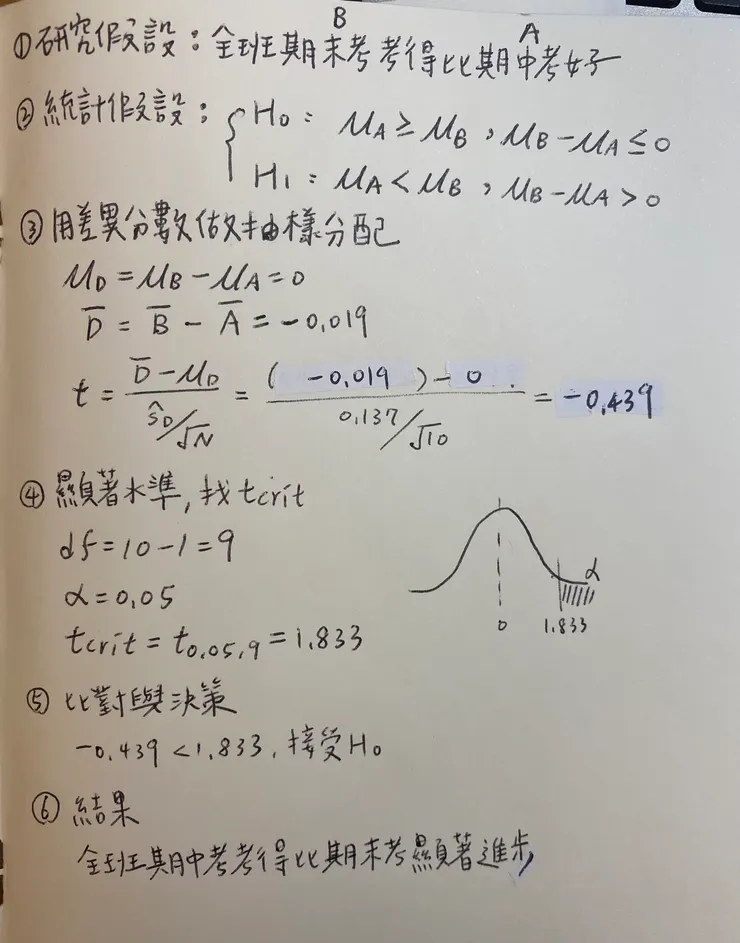 B A
①研究假設：全班期末考考得比期中考好
②統計假設； H₀： μA ≥ μB , μB－μA ≤ 0
H₁： μA < μB , μB－μA > 0
③用差異分數做抽樣分配
μD = μB － μA = 0
D̅ = B̅ － A̅ = －0.019
t = (D̅－μD)/(ŝD/√N) = ((－0.019)－0)/(0.137/√10) = －0.439
④顯著水準, 找tcrit
df = 10－1 = 9
α = 0.05
tcrit = t0.05,9 = 1.833
α
0 1.833
⑤比對與決策
－0.439 < 1.833, 接受H₀
⑥結果
全班期中考考得比期末考顯著進步,